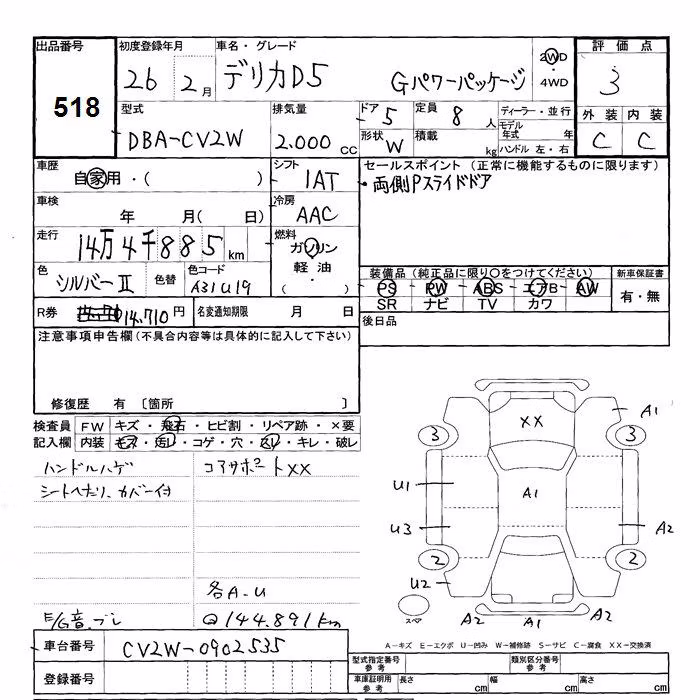 出品番号 初度登録年月 車名・グレード 評価点
518 26 2月 デリカD5 Gパワーパッケージ 2WD 4WD 3
型式 排気量 ドア 5 定員 8人 ディーラー・並行 外装 内装
DBA-CV2W 2.000cc 形状 W 積載 kg モデル年式 年 ハンドル 左・右 C C
車歴 自家用・( ) シフト 1AT セールスポイント(正常に機能するものに限ります)
・両側Pスライドドア
車検 年 月( 日) 冷房 AAC
走行 14万4千885km 燃料 ガソリン 軽油・( )
色 シルバーII 色替 色コード A31U19
装備品(純正品に限り○をつけてください) 新車保証書
PS PW ABS エアB AW 有・無
SR ナビ TV カワ
R券 14,710円 名変通知期限 月 日 後日品
注意事項申告欄(不具合内容等は具体的に記入して下さい)
修復歴 有 〔箇所 〕
検査員 FW キズ・飛石・ヒビ割・リペア跡・×要
記入欄 内装 キズ・汚レ・コゲ・穴・スレ・キレ・破レ
ハンドルハゲ コアサポートXX
シートヘたり、カバー付
各A-U
E/G音.ブレ @144,891km
車台番号 CV2W-0902535
登録番号
XX
A1
3 3
U1 A1
U3 A2
2 2
U2
スペア A2 A2
A-キズ E-エクボ U-凹み W-補修跡 S-サビ C-腐食 XX-交換済
型式指定番号 参考 類別区分番号 参考
車庫証明用 参考 長さ cm 幅 cm 高さ cm